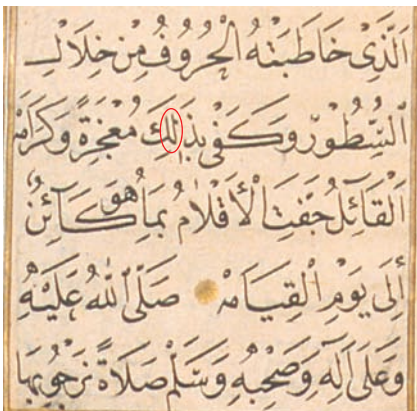 اَلَّذِى خَاطَبَتْهُ الْحُرُوفُ مِنْ خِلَالِ
السُّطُورِ وَكَفٰى بِذَالِكَ مُعْجِزَةً وَكَرَامَة
اَلْقَائِلُ جَفَّتِ الْاَقْلَامُ بِمَا هُوَ كَائِنٌ
اِلَى يَوْمِ الْقِيَامَةِ صَلَّى اللهُ عَلَيْهِ
وَعَلَى اٰلِهِ وَصَحْبِهِ وَسَلَّمْ صَلَاةً نَرْجُو بِهَا